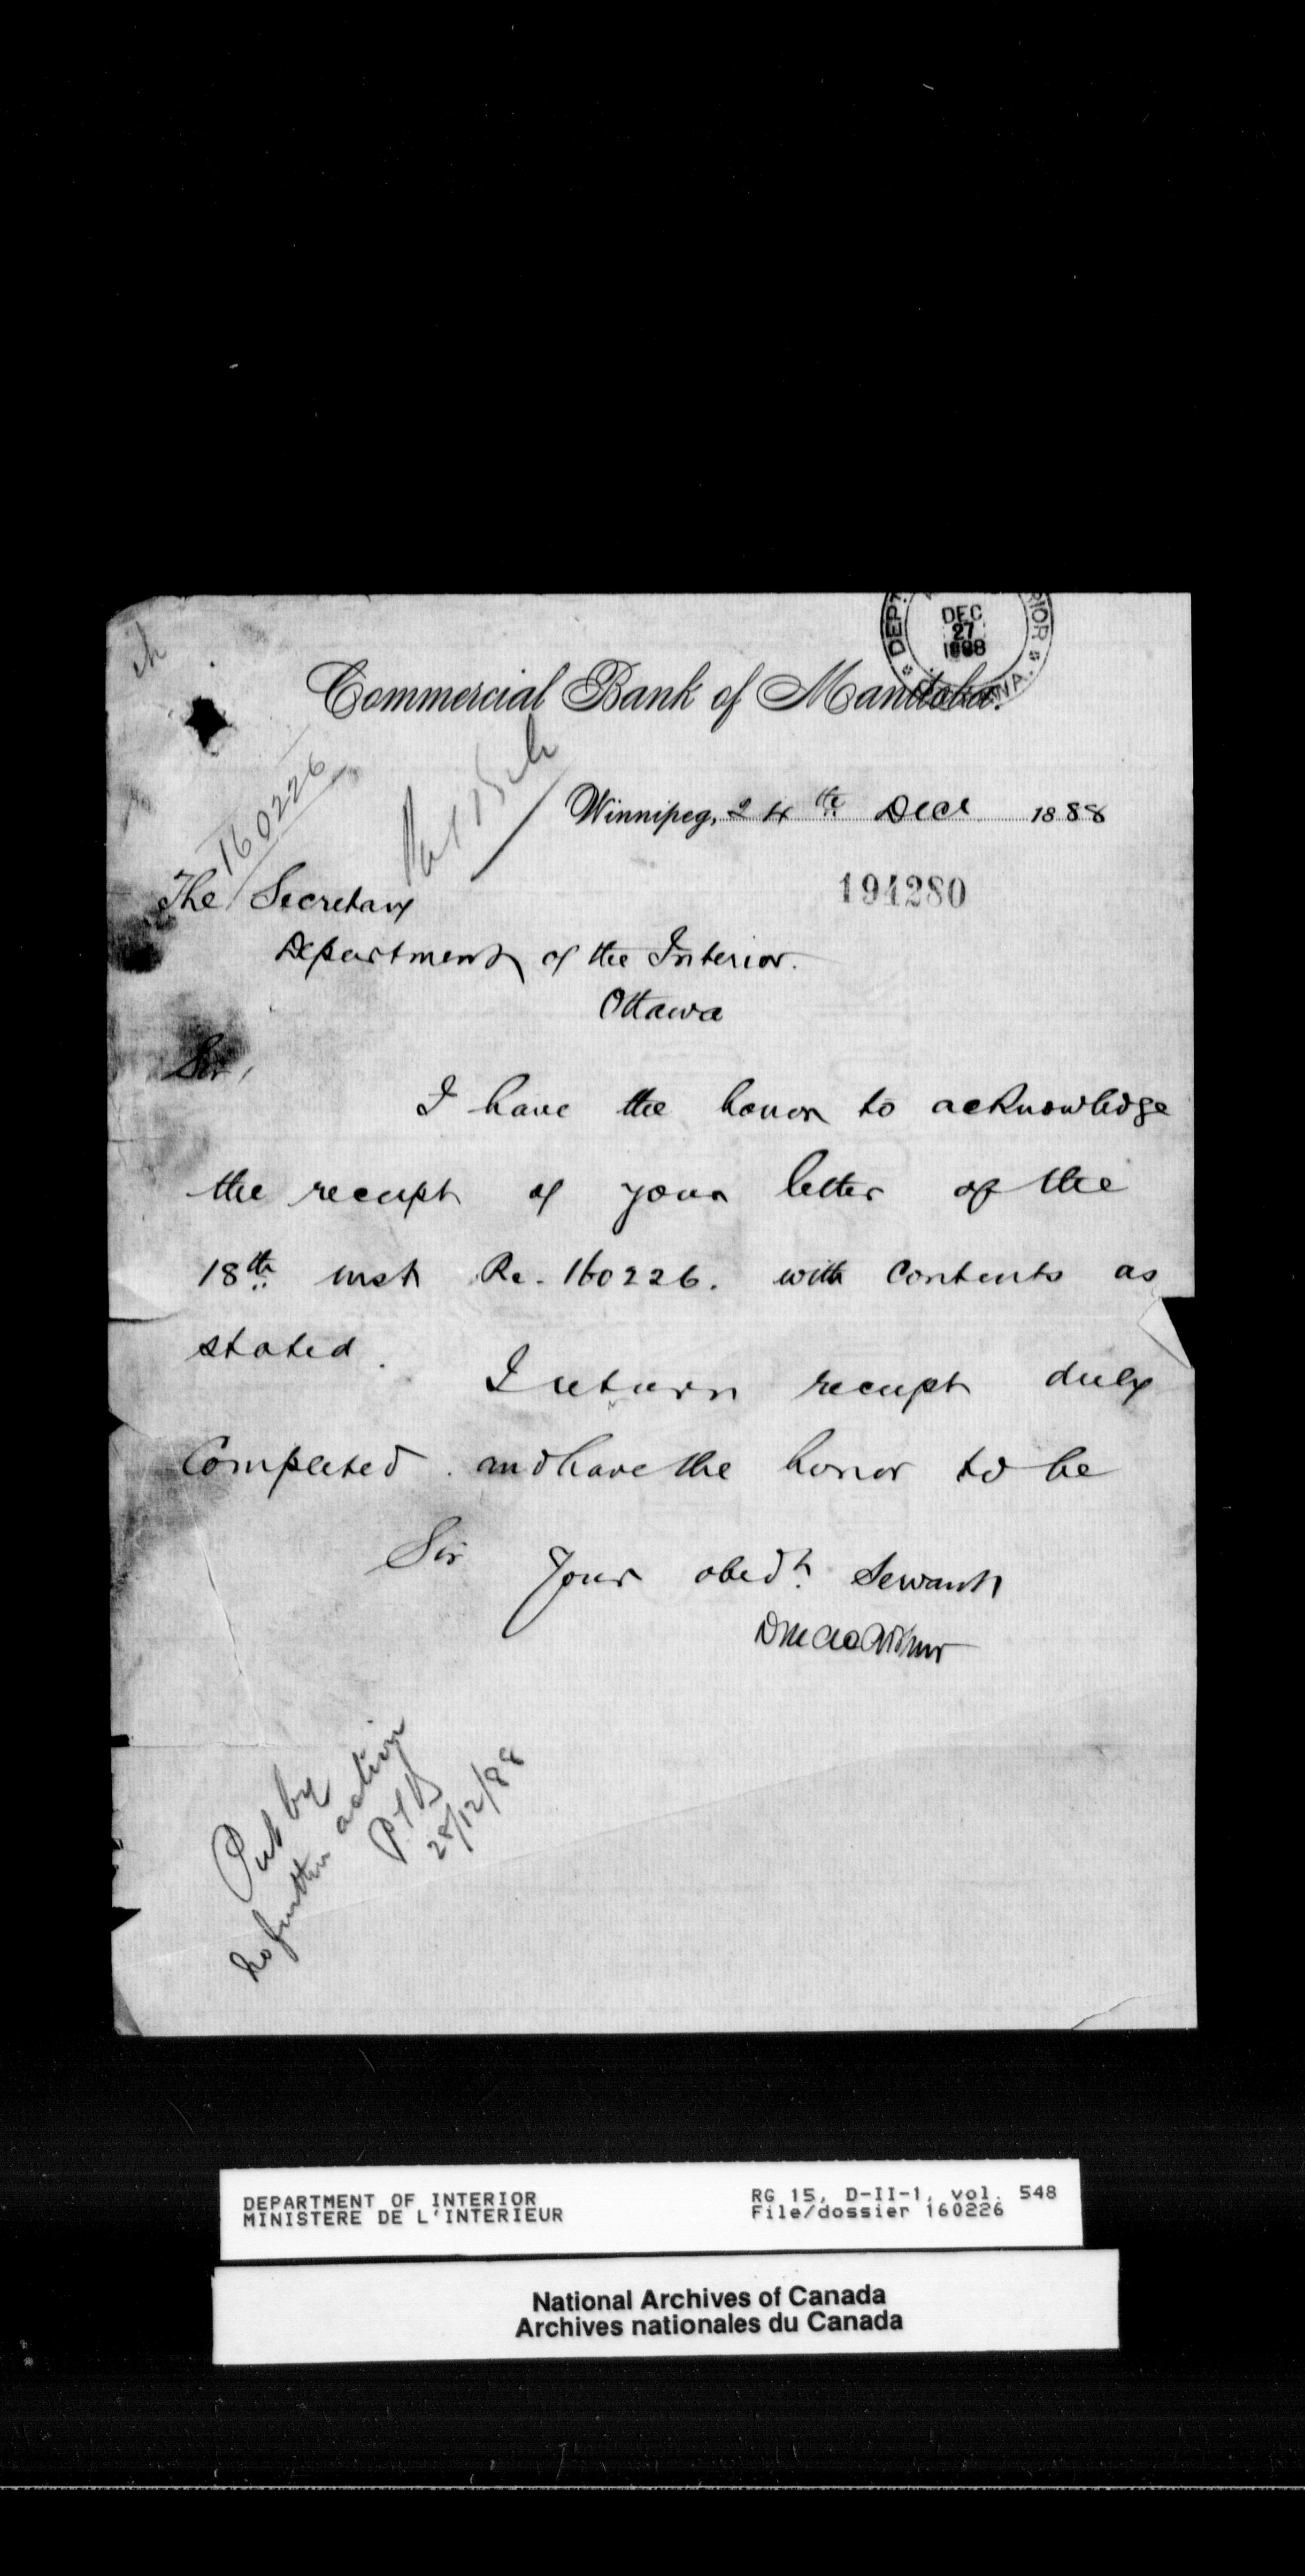 DEPT. RIOR
DEC
27
1888
WA.
Commercial Bank of Manitoba.
160226
Winnipeg, 24th Decr 1888
194280
The Secretary
Department of the Interior.
Ottawa
Sir,
I have the honor to acknowledge
the receipt of your letter of the
18th inst Re. 160226. with contents as
stated.
I return receipt duly
Completed. and have the honor to be
Sir
Your obedt. Servant
DMacArthur
Put by
No further action
28/12/88
DEPARTMENT OF INTERIOR
MINISTERE DE L'INTERIEUR
RG 15, D-II-1, vol. 548
File/dossier 160226
National Archives of Canada
Archives nationales du Canada